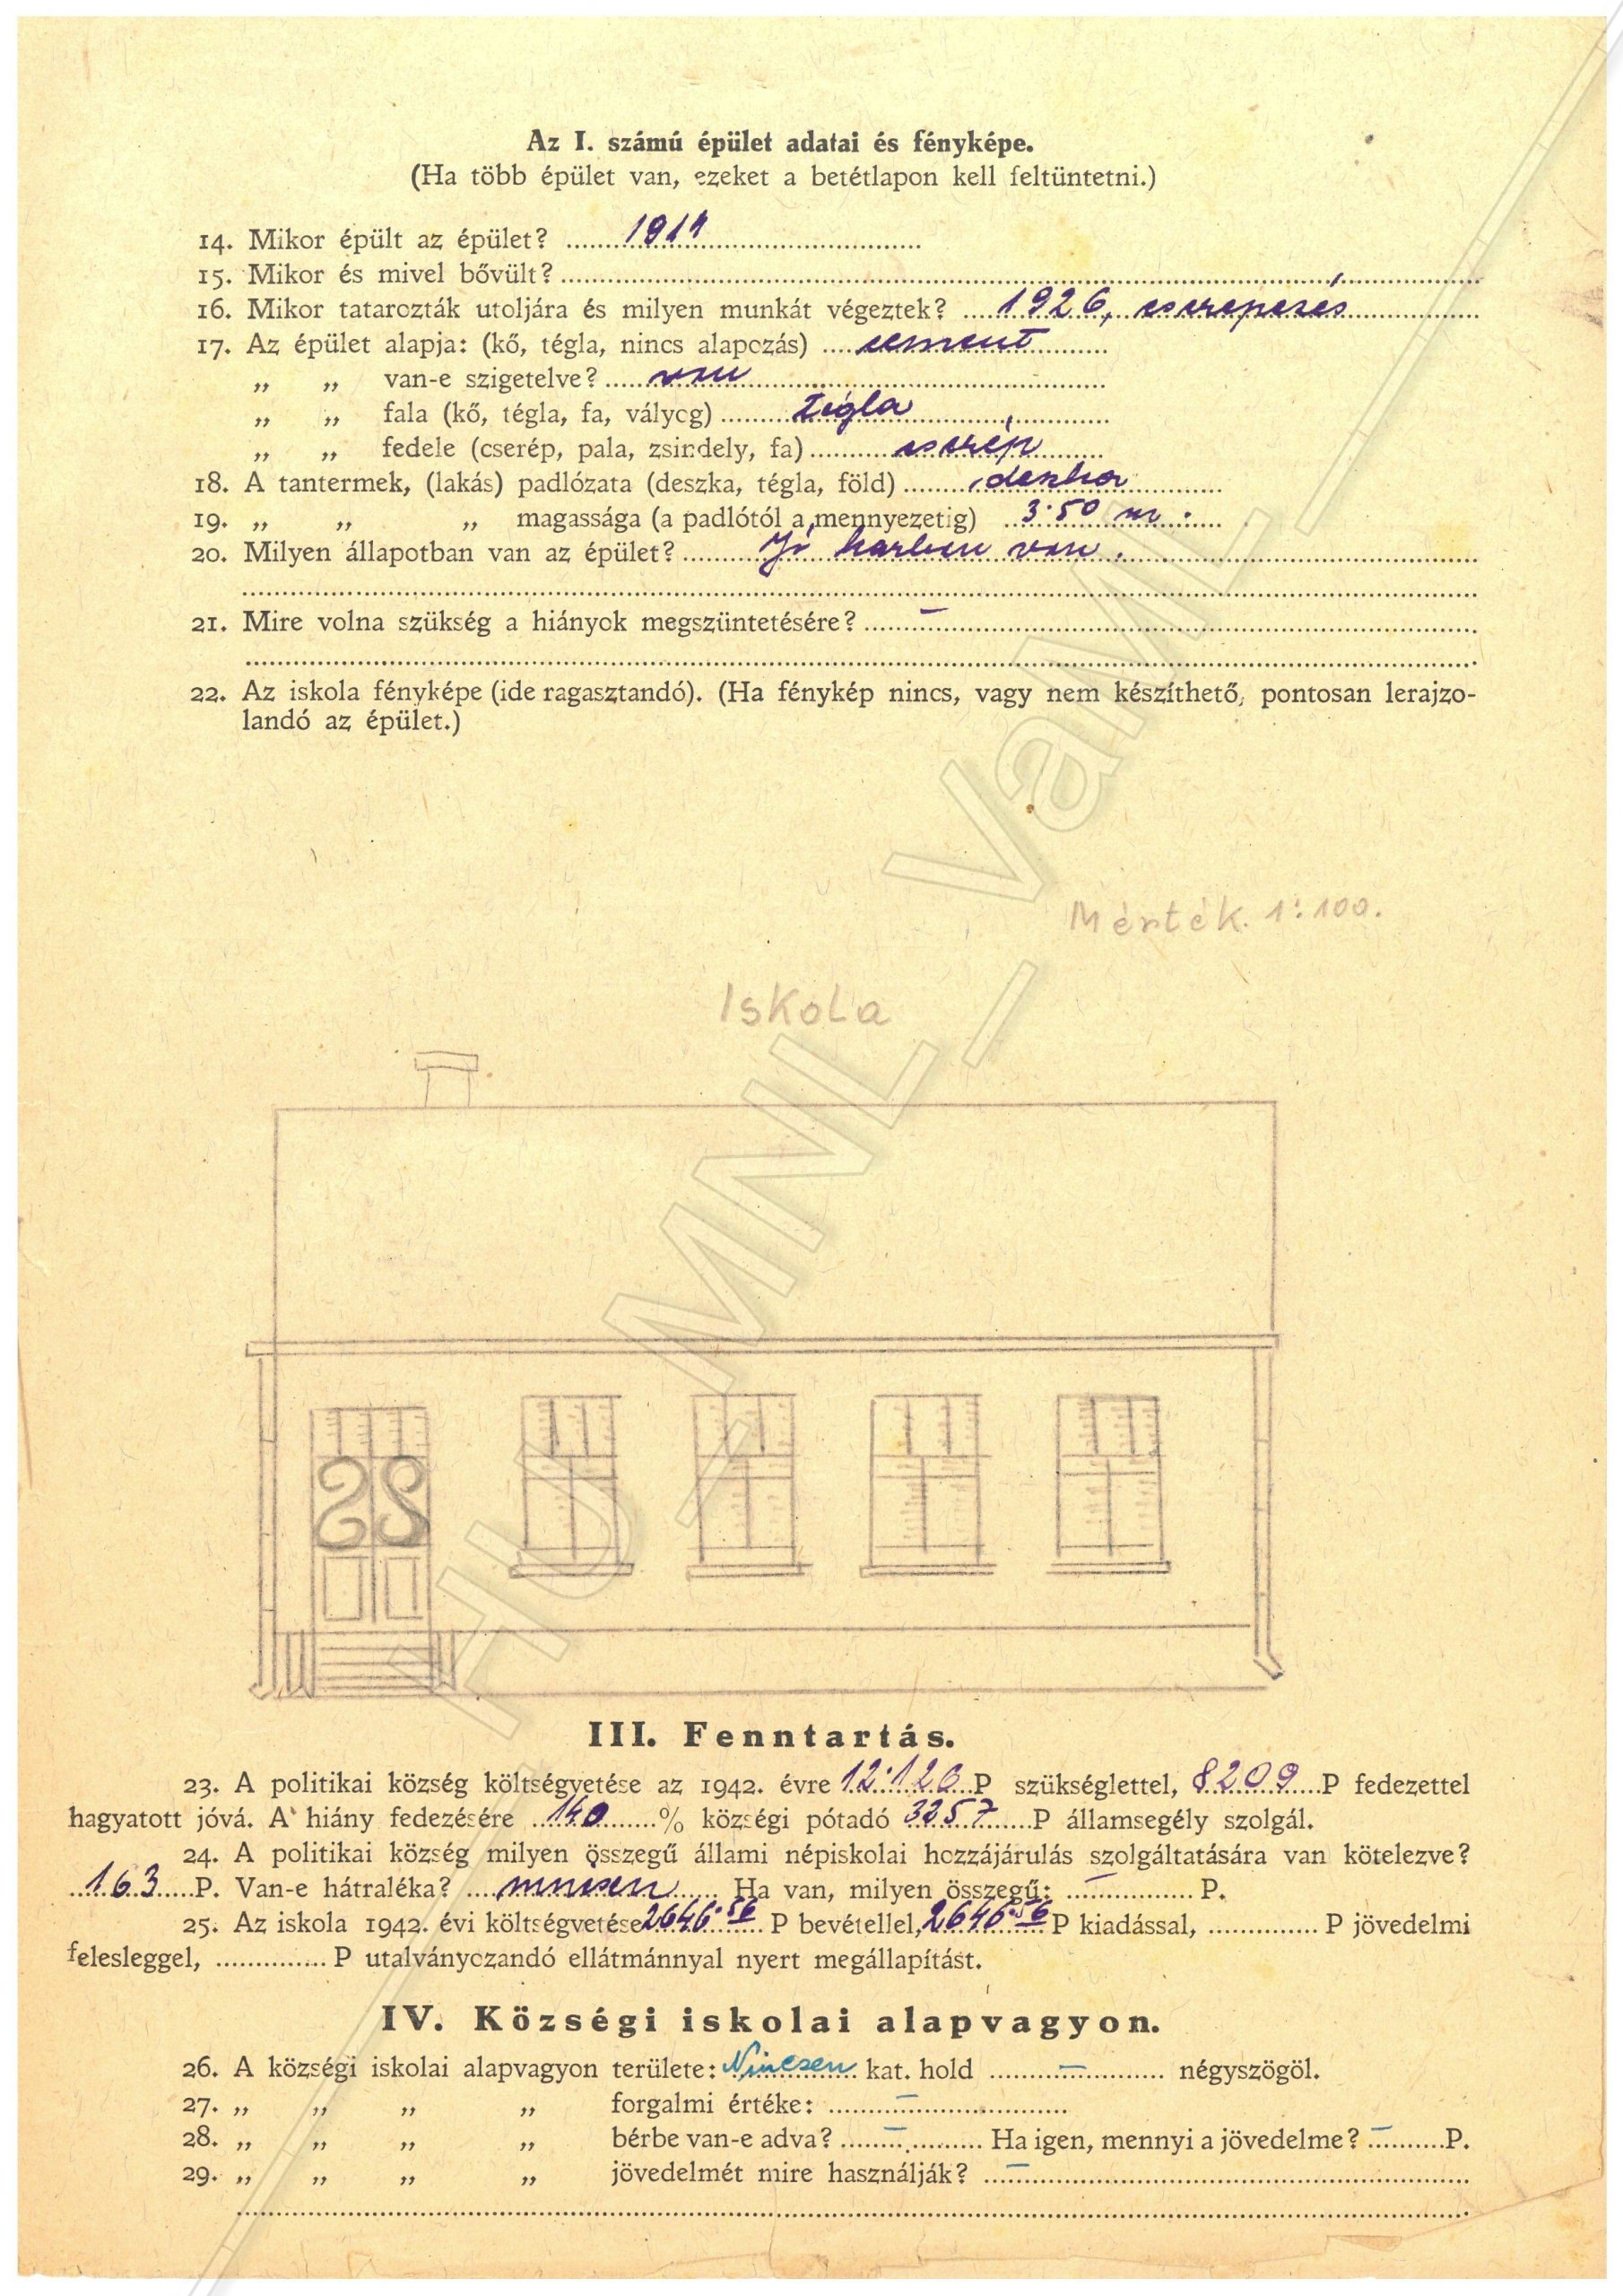 Az I. számú épület adatai és fényképe.
(Ha több épület van, ezeket a betétlapon kell feltüntetni.)
14. Mikor épült az épület?
15. Mikor és mivel bővült?
16. Mikor tatarozták utoljára és milyen munkát végeztek? 1926, cserepezés
17. Az épület alapja: (kő, tégla, nincs alapozás) cement
„ „ van-e szigetelve? van
„ „ fala (kő, tégla, fa, vályog) tégla
„ „ fedele (cserép, pala, zsindely, fa) cserép
18. A tantermek, (lakás) padlózata (deszka, tégla, föld) deszka
19. „ „ „ magassága (a padlótól a mennyezetig) 3·50 m.
20. Milyen állapotban van az épület? Jó karban van.
21. Mire volna szükség a hiányok megszüntetésére? –
22. Az iskola fényképe (ide ragasztandó). (Ha fénykép nincs, vagy nem készíthető, pontosan lerajzo-
landó az épület.)
Mérték. 1:100.
Iskola
III. Fenntartás.
23. A politikai község költségvetése az 1942. évre 12·126 P szükséglettel, 8209 P fedezettel
hagyatott jóvá. A hiány fedezésére 140 % községi pótadó 3257 P államsegély szolgál.
24. A politikai község milyen összegű állami népiskolai hozzájárulás szolgáltatására van kötelezve?
163 P. Van-e hátraléka? nincsen Ha van, milyen összegű: – P.
25. Az iskola 1942. évi költségvetése 2646·56 P bevétellel, 2646·56 P kiadással, P jövedelmi
felesleggel, P utalványozandó ellátmánnyal nyert megállapítást.
IV. Községi iskolai alapvagyon.
26. A községi iskolai alapvagyon területe: Nincsen kat. hold – négyszögöl.
27. „ „ „ „ forgalmi értéke: –
28. „ „ „ „ bérbe van-e adva? – Ha igen, mennyi a jövedelme? – P.
29. „ „ „ „ jövedelmét mire használják? –
HU_MNL_VaML_